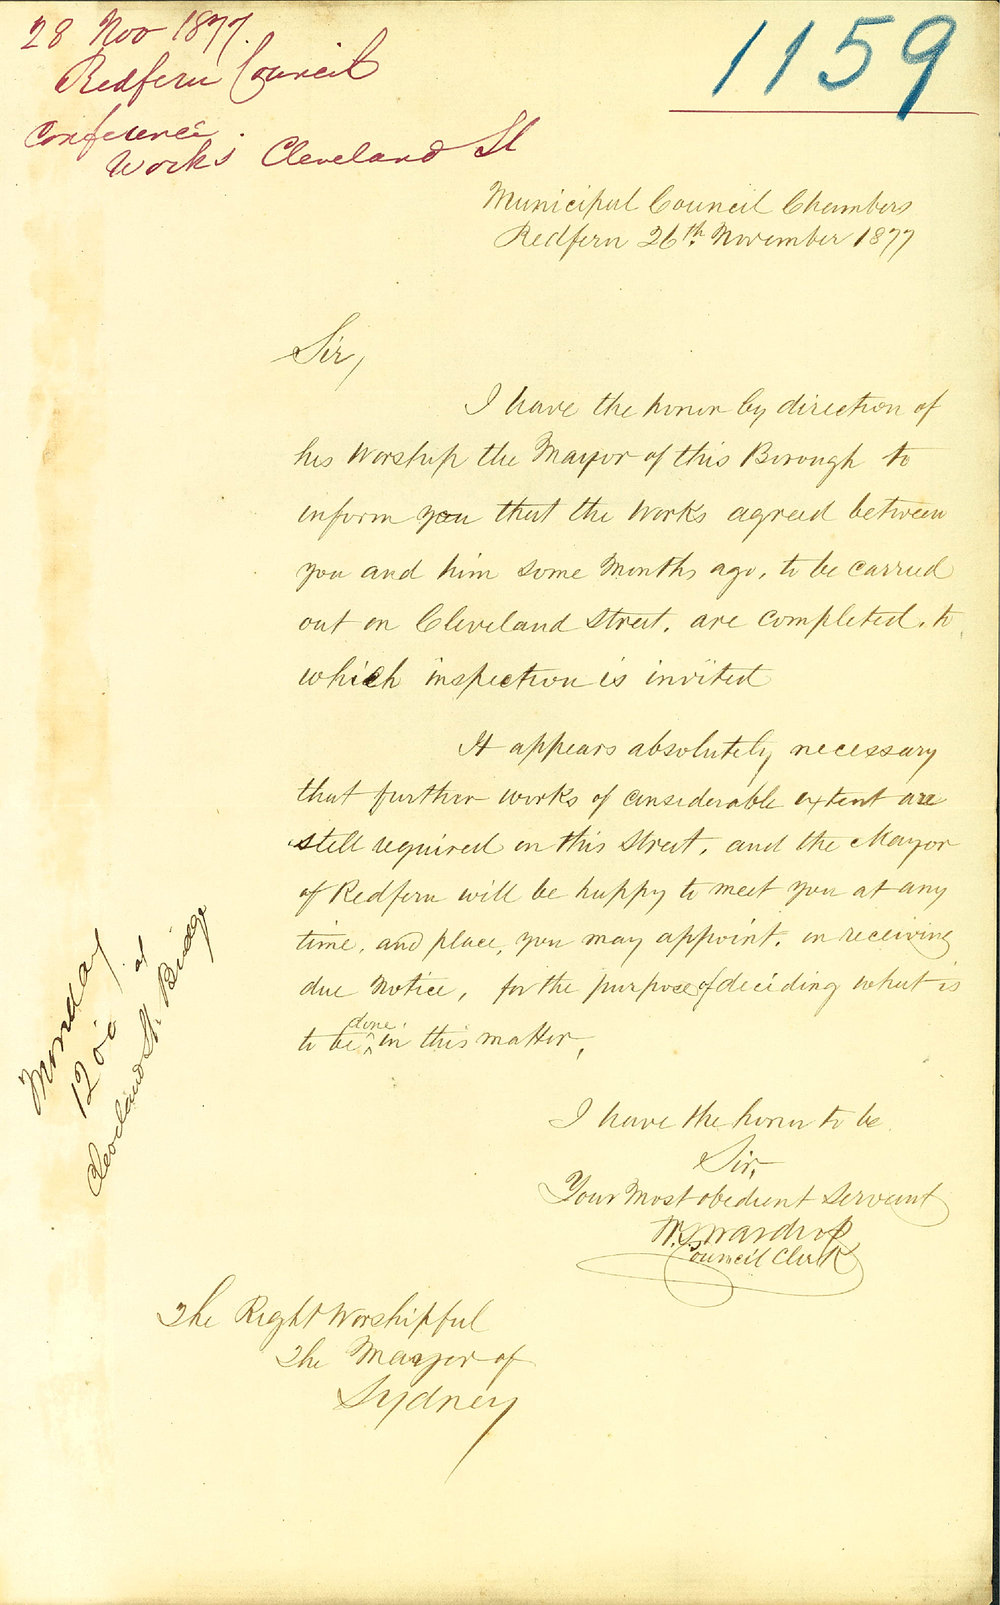 28 Nov 1877.
Redfern Council
Conference.
Works Cleveland St
1159
Municipal Council Chambers
Redfern 26th November 1877
Sir,
I have the honor by direction of
his Worship the Mayor of this Borough to
inform you that the Works agreed between
you and him some Months ago, to be carried
out on Cleveland Street, are completed, to
which inspection is invited
It appears absolutely necessary
that further works of considerable extent are
still required on this Street, and the Mayor
of Redfern will be happy to meet you at any
time, and place, you may appoint, on receiving
due Notice, for the purpose of deciding what is
to be done in this matter,
Monday
1200 at
Cleveland St. Bridge
I have the honor to be
Sir,
Your Most obedient Servant
Wardrop
Council Clerk
The Right Worshipful
The Mayor of
Sydney